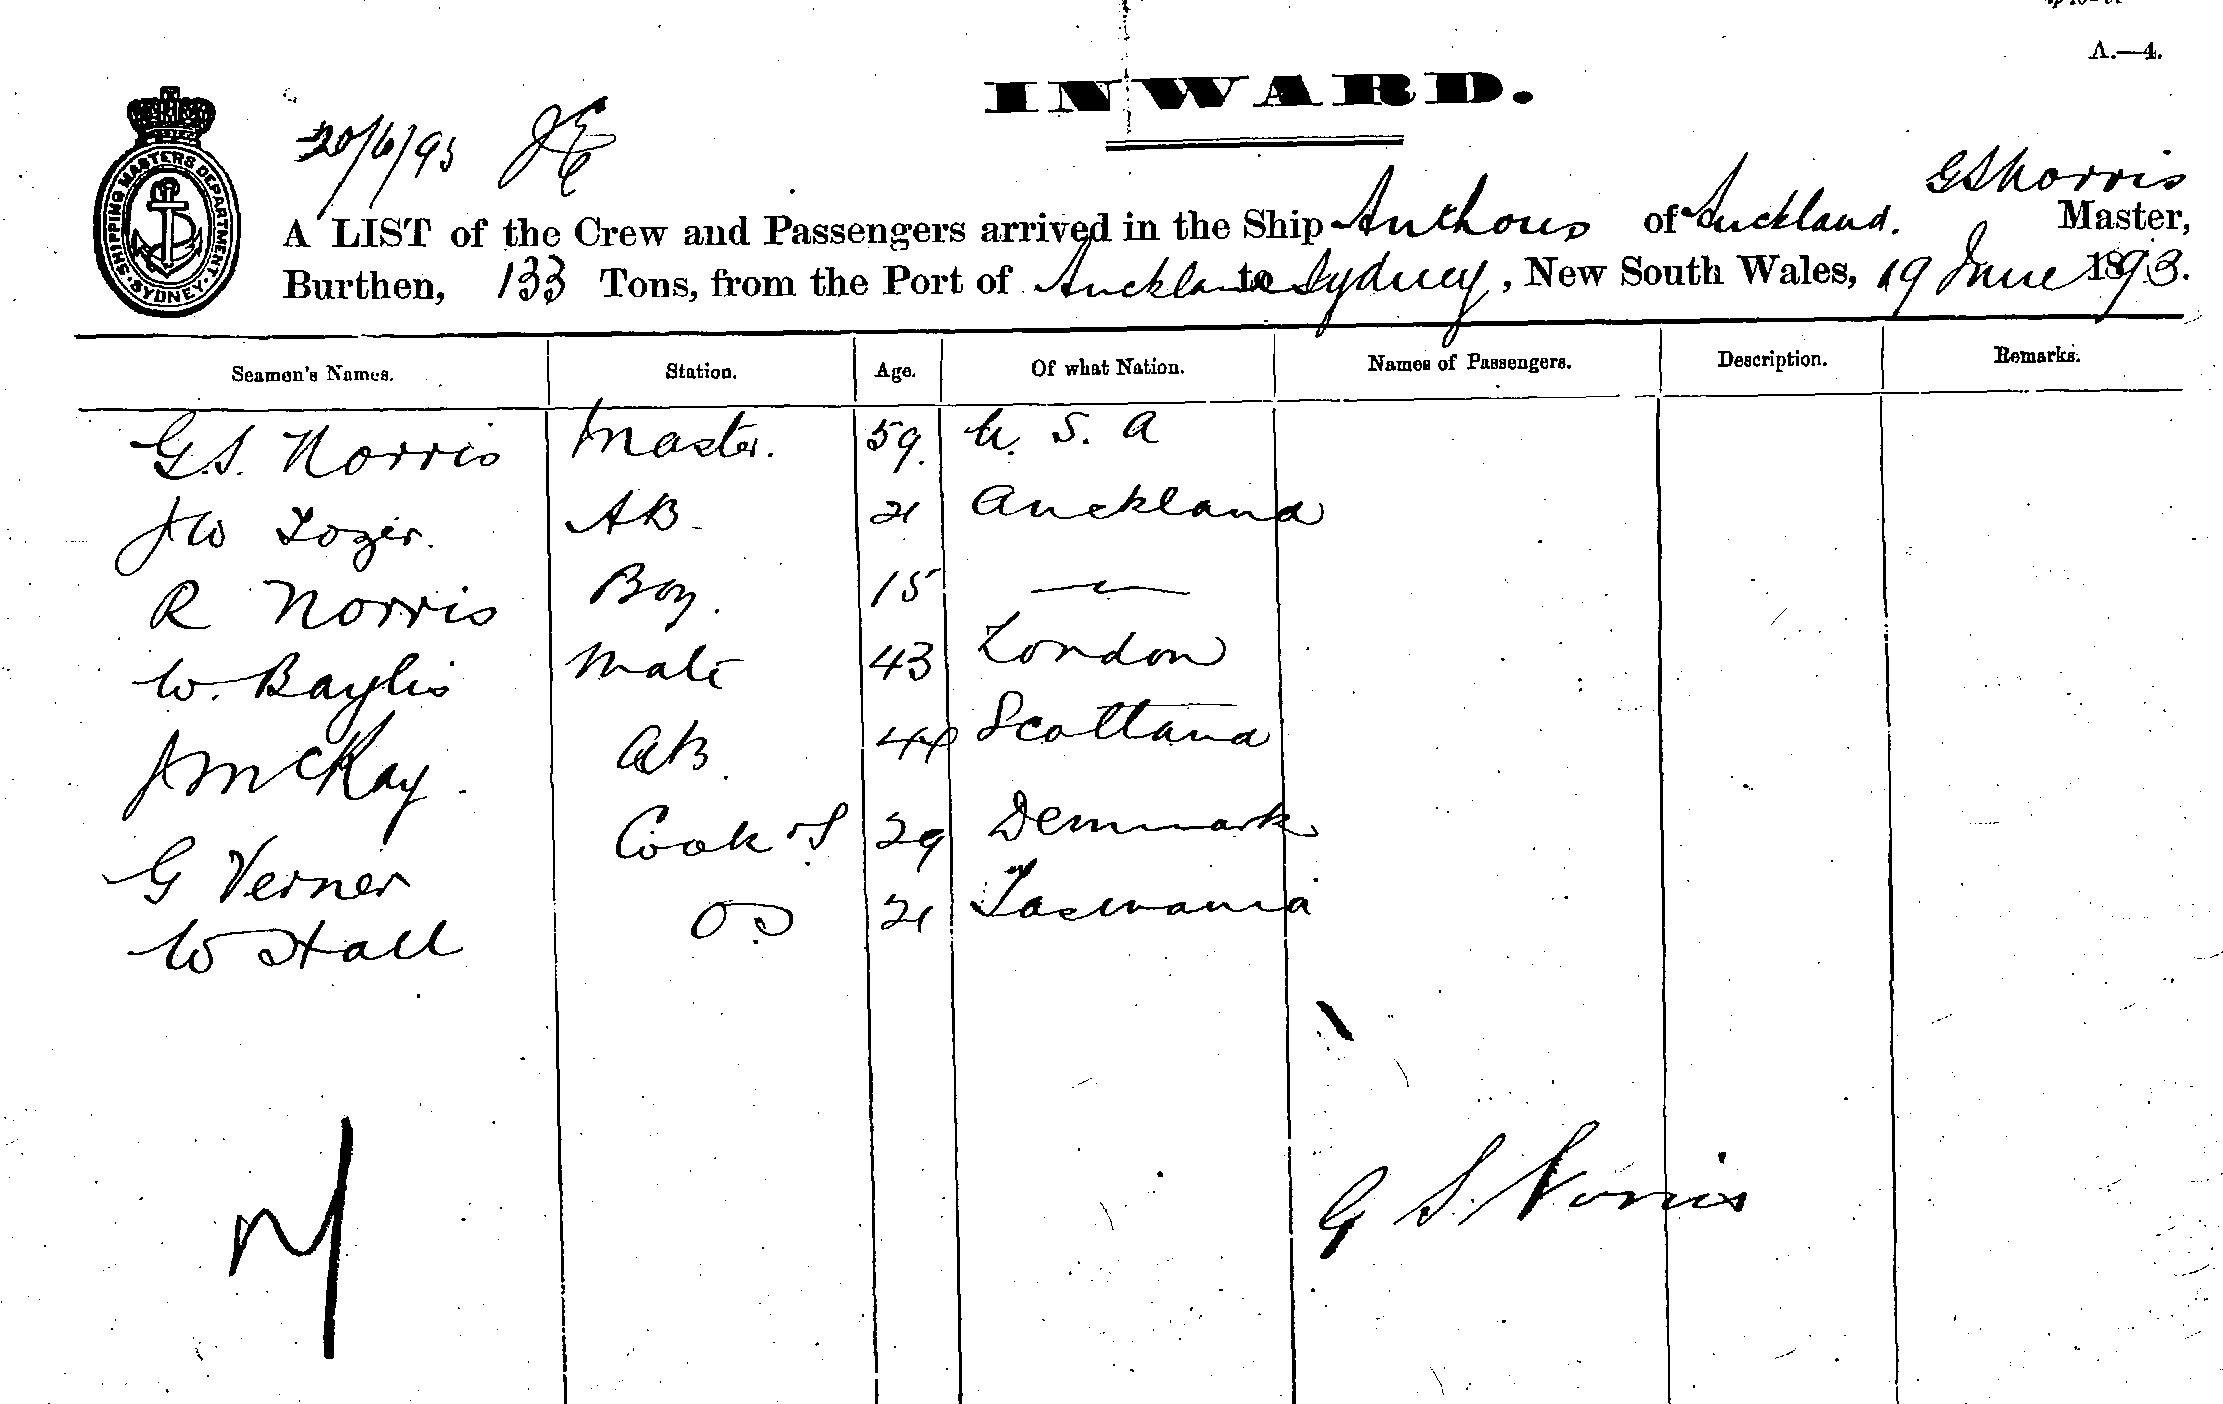 A.—4.
INWARD.
20/6/93 JE
SHIPPING MASTERS DEPARTMENT SYDNEY
G S Norris
A LIST of the Crew and Passengers arrived in the Ship Anthons of Auckland. Master,
Burthen, 133 Tons, from the Port of Auckland to Sydney, New South Wales, 19 June 1893.
Seamen's Names. Station. Age. Of what Nation. Names of Passengers. Description. Remarks.
G.S. Norris Master. 59. U. S. A
J W Tozer. AB 21 Auckland
R Norris Boy. 15 —
W. Baylis Mate 43 London
J McKay. AB. 44 Scotland
G Verner Cook & S 29 Denmark
W Hall OS 21 Tasmania
G S. Norris